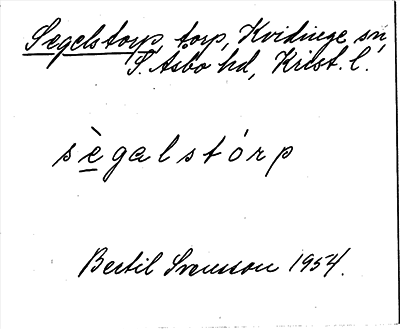 Segelstorp, torp, Kvidinge sn,
S. Åsbo hd, Krist. l.
sègalstórp
Bertil Svensson 1954.